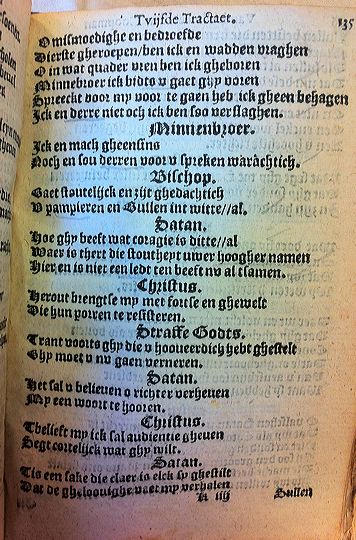 Tvijfde Tractaet. 135
O mismoedighe en bedroefde
Dierste gheroepen/ben ick en wadden vraghen
O in wat quader vren ben ick gheboren
Minnebroer ick bidts v gaet ghy voren
Spreeckt voor my voor te gaen heb ick gheen behagen
Jck en derre niet och ick ben soo verslaghen.
Minnenbroer.
Jck en mach gheensins
Noch en sou derren voor v spreken warachtich.
Bisschop.
Gaet stoutelijck en zijt ghedachtich
V pampieren en Bullen int witte//al.
Satan.
Hoe ghy beeft wat coragie is ditte//al
Waer is there die stoutheyt uwer hoogher namen
Hier en is niet een ledt ten beeft nv al tsamen.
Christus.
Herout brengtse my met forse en ghewelt
Die hun poiren te resisteren.
Straffe Godts.
Trant voorts ghy die v hooueerdich hebt ghestelt
Ghy moet v nv gaen verneren.
Satan.
Het sal v believen o richter verheven
My een woort te hooren.
Christus.
Tbelieft my ick sal audientie gheuen
Segt cortelijck wat ghy wilt.
Satan.
Tis een sake die claer is elck sy ghestilt
Dat de ghelooüighe vaet my verhalen
K iiij Bullen